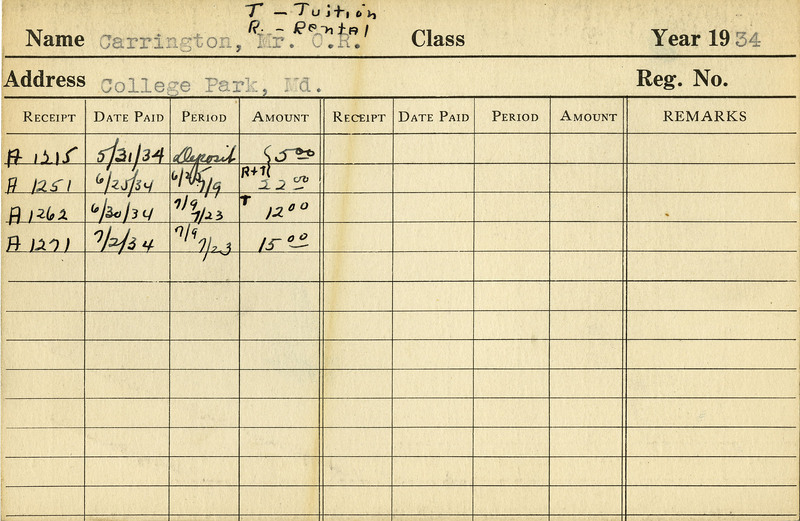 T - Tuition
R. - Rental
Name Carrington, Mr. O.R. Class Year 1934
Address College Park, Md. Reg. No.
RECEIPT DATE PAID PERIOD AMOUNT RECEIPT DATE PAID PERIOD AMOUNT REMARKS
A 1215 5/31/34 Deposit { 5 00
A 1251 6/25/34 6/25 7/9 R+T{ 22 00
A 1262 6/30/34 7/9 7/23 T 12 00
A 1271 7/2/34 7/9 7/23 15 00